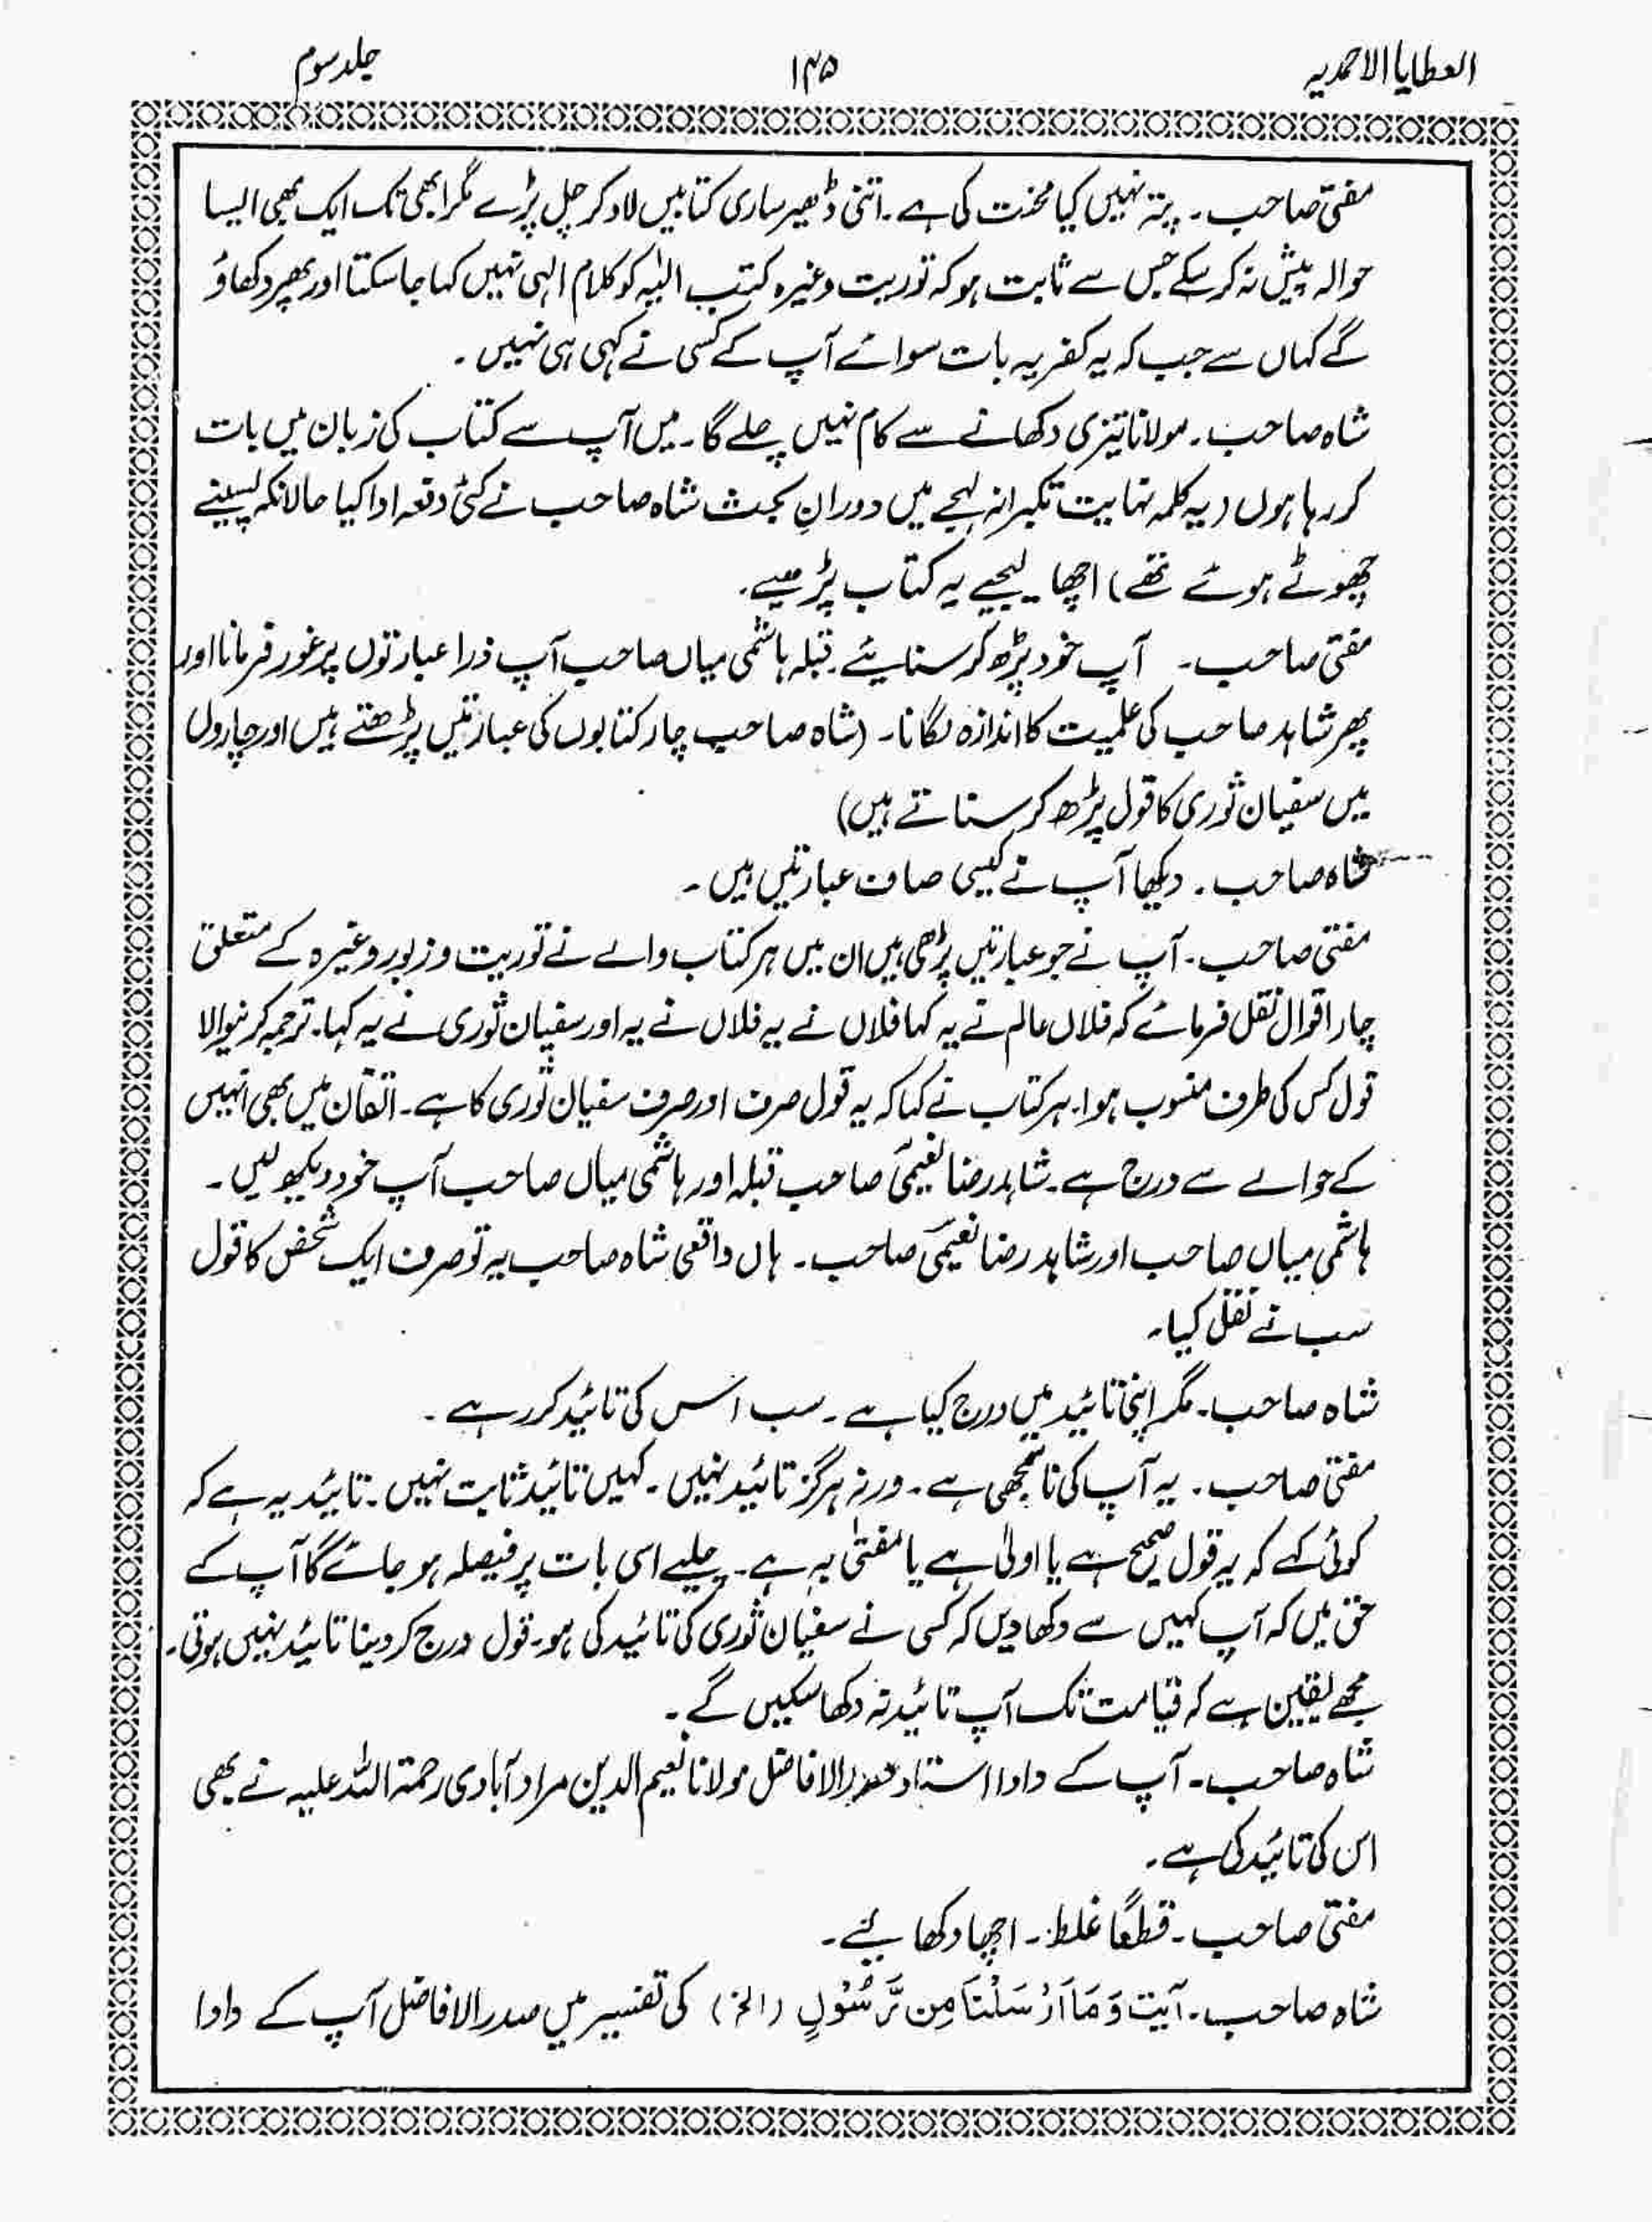 العطایا الاحمدیہ ۱۴۵ جلد سوم
مفتی صاحب ۔ پتہ نہیں کیا محنت کی ہے ۔ اتنی ڈھیر ساری کتابیں لاد کر چل پڑے مگر ابھی تک ایک بھی ایسا
حوالہ پیش نہ کر سکے جس سے ثابت ہو کہ توریت وغیرہ کتب الٰہیہ کو کلام الہی نہیں کہا جا سکتا اور پھر دکھاؤ
گے کہاں سے جب کہ یہ کفریہ بات سوائے آپ کے کسی نے کہی ہی نہیں ۔
شاہ صاحب ۔ مولانا تیزی دکھانے سے کام نہیں چلے گا ۔ میں آپ سے کتاب کی زبان میں بات
کر رہا ہوں (یہ کلمہ نہایت تکبرانہ لہجے میں دورانِ بحث شاہ صاحب نے کئی دفعہ ادا کیا حالانکہ پسینے
چھوٹے ہوئے تھے) اچھا لیجیے یہ کتاب پڑھیے۔
مفتی صاحب ۔ آپ خود پڑھ کر سنایئے ۔ قبلہ ہاشمی میاں صاحب آپ ذرا عبارتوں پر غور فرمانا اور
پھر شاہد صاحب کی علمیت کا اندازہ لگانا ۔ (شاہ صاحب چار کتابوں کی عبارتیں پڑھتے ہیں اور چاروں
میں سفیان ثوری کا قول پڑھ کر سناتے ہیں)
شاہ صاحب ۔ دیکھا آپ نے کیسی صاف عبارتیں ہیں ۔
مفتی صاحب ۔ آپ نے جو عبارتیں پڑھی ہیں ان میں ہر کتاب والے نے توریت و زبور وغیرہ کے متعلق
چار اقوال نقل فرمائے کہ فلاں عالم نے یہ کہا فلاں نے یہ فلاں نے یہ اور سفیان ثوری نے یہ کہا ۔ ترجمہ کرنیوالا
قول کس کی طرف منسوب ہوا ۔ ہر کتاب نے کہا کہ یہ قول صرف اور صرف سفیان ثوری کا ہے ۔ اتقان میں بھی انہیں
کے حوالے سے درج ہے ۔ شاہد رضا نعیمی صاحب قبلہ اور ہاشمی میاں صاحب آپ خود دیکھ لیں ۔
ہاشمی میاں صاحب اور شاہد رضا نعیمی صاحب ۔ ہاں واقعی شاہ صاحب یہ تو صرف ایک شخص کا قول
سب نے نقل کیا ۔
شاہ صاحب ۔ مگر اپنی تائید میں درج کیا ہے ۔ سب اس کی تائید کر رہے ۔
مفتی صاحب ۔ یہ آپ کی ناسمجھی ہے ۔ ورنہ ہرگز تائید نہیں ۔ کہیں تائید ثابت نہیں ۔ تائید یہ ہے کہ
کوئی کہے کہ یہ قول صحیح ہے یا اولیٰ ہے یا مفتیٰ بہ ہے ۔ چلیے اسی بات پر فیصلہ ہو جائے گا آپ کے
حق میں کہ آپ کہیں سے دکھا دیں کہ کسی نے سفیان ثوری کی تائید کی ہو ۔ قول درج کر دینا تائید نہیں ہوتی ۔
مجھے یقین ہے کہ قیامت تک آپ تائید نہ دکھا سکیں گے ۔
شاہ صاحب ۔ آپ کے دادا استاد صدر الافاضل مولانا نعیم الدین مراد آبادی رحمۃ اللہ علیہ نے بھی
اس کی تائید کی ہے ۔
مفتی صاحب ۔ قطعًا غلط ۔ اچھا دکھایئے ۔
شاہ صاحب ۔ آیت وَمَا اَرْسَلْنَا مِن رَّسُوْلٍ (الخ) کی تفسیر میں صدر الافاضل آپ کے دادا